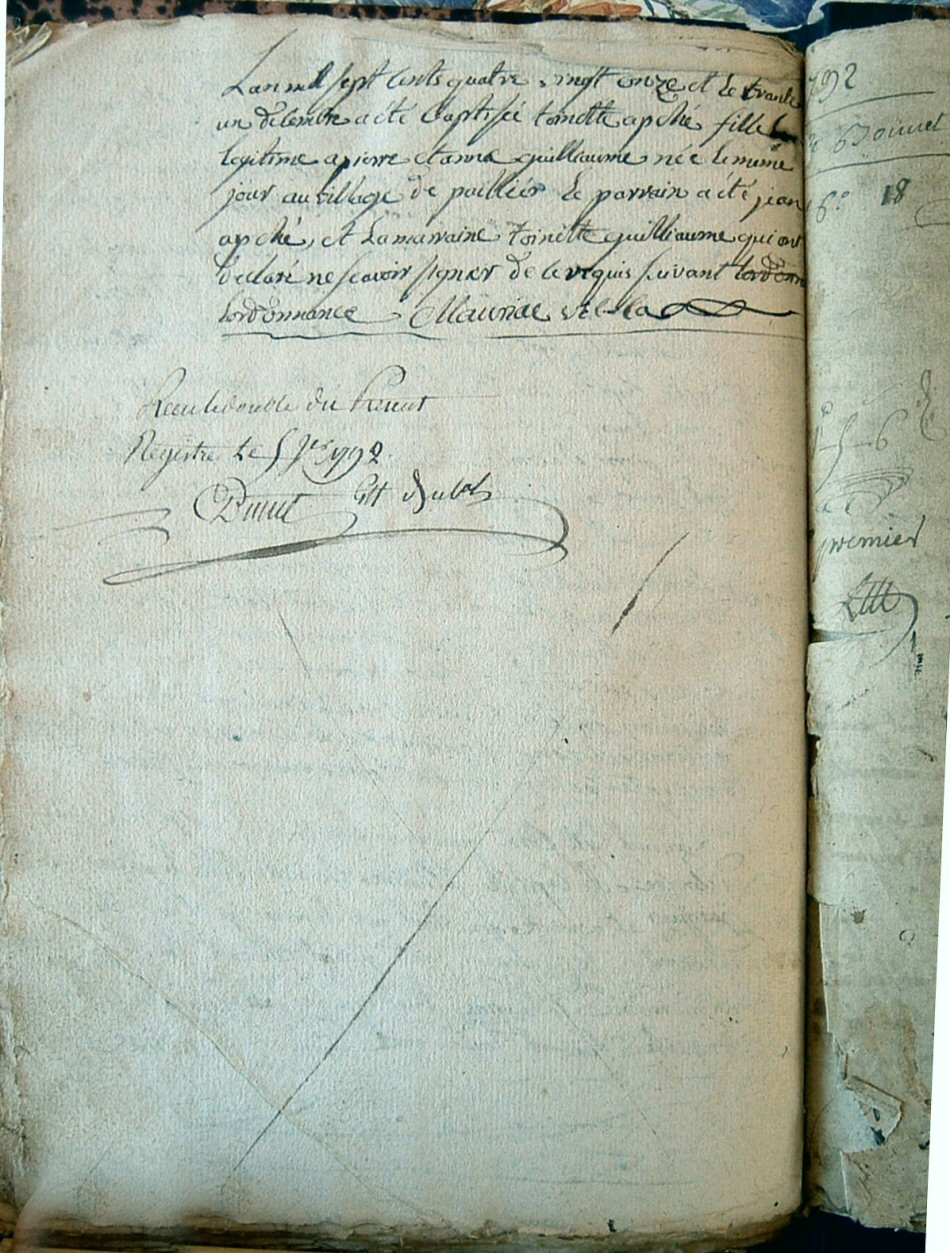 Lan mil sept cents quatre vingt onze et le trante
un decembre a été baptisée toinette apché fille
legitime a pierre et anne guilliaume née le meme
jour au village de pailliér le parrain a été jean
apché, et La marraine toinette guilliaume qui ont
declaré ne scavoir signer de ce requis suivant lordonn
lordonnance Mauriac
Receu le double du present
Registre le 5 1792
792
Bonnet
18
6
premier